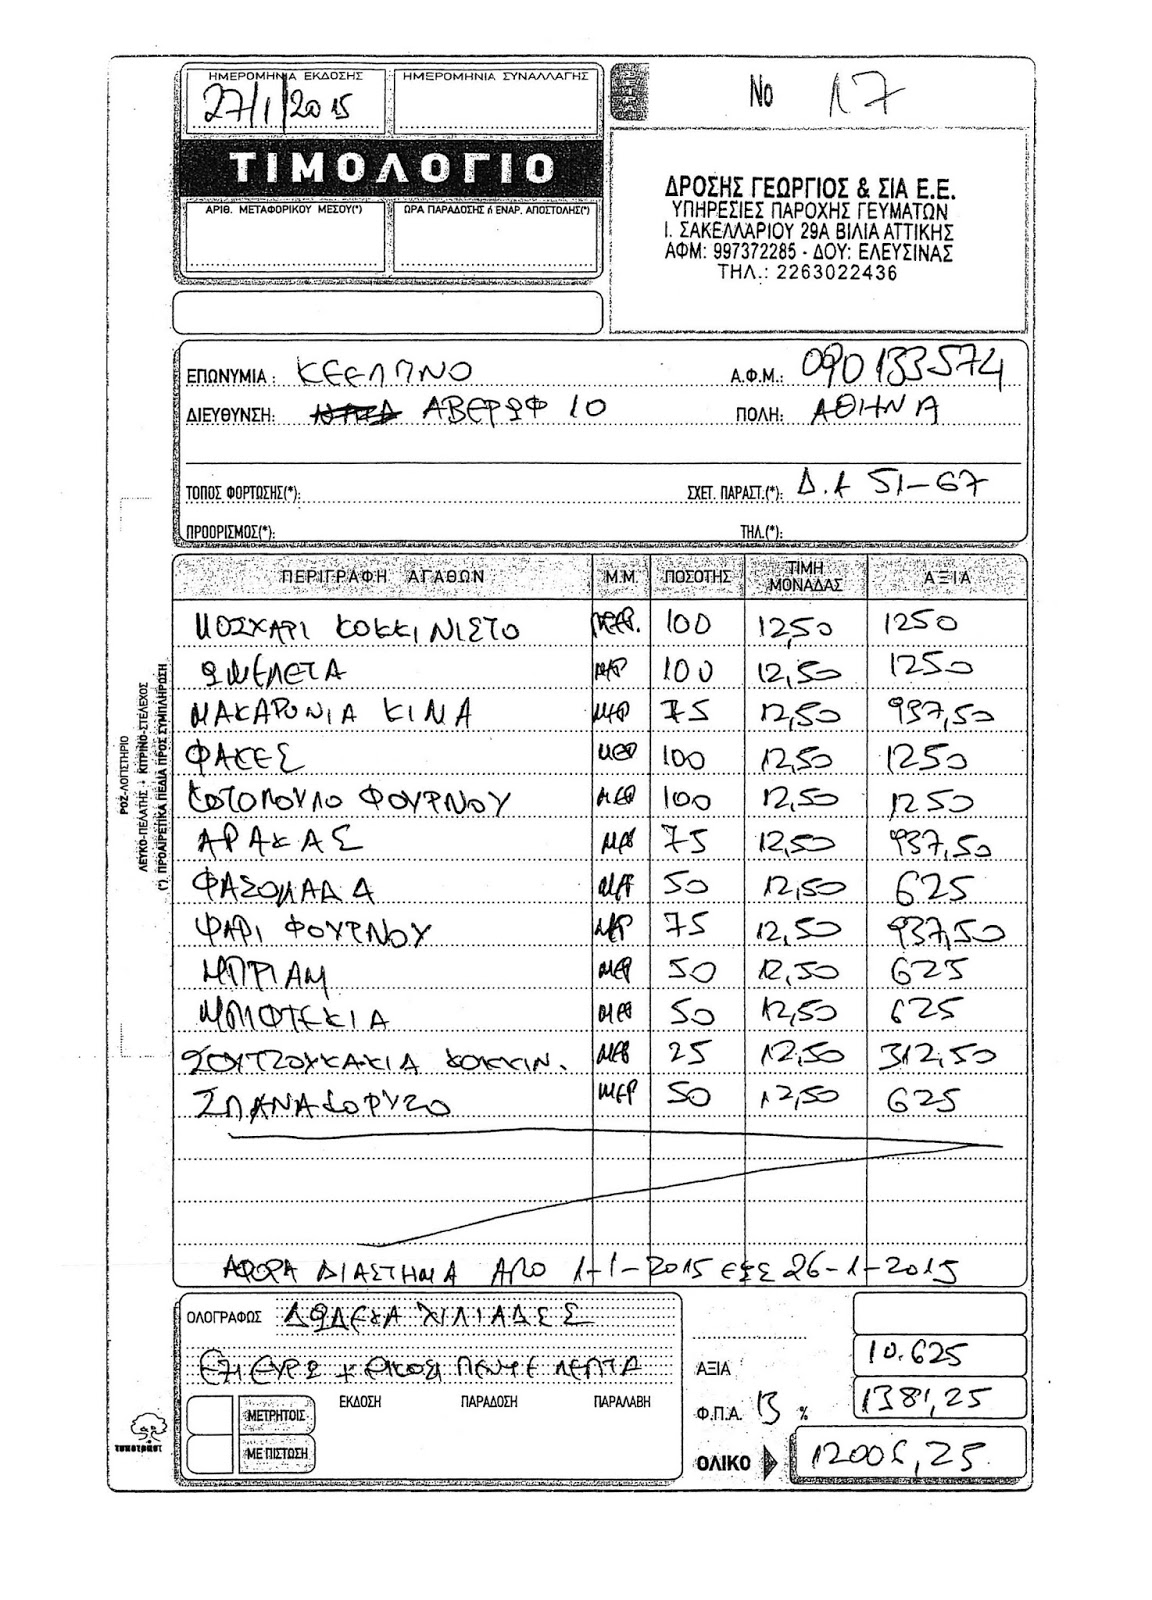 ΗΜΕΡΟΜΗΝΙΑ ΕΚΔΟΣΗΣ
27/1/2015
ΗΜΕΡΟΜΗΝΙΑ ΣΥΝΑΛΛΑΓΗΣ
Νο 17
ΤΙΜΟΛΟΓΙΟ
ΑΡΙΘ. ΜΕΤΑΦΟΡΙΚΟΥ ΜΕΣΟΥ(*)
ΩΡΑ ΠΑΡΑΔΟΣΗΣ ή ΕΝΑΡ. ΑΠΟΣΤΟΛΗΣ(*)
ΔΡΟΣΗΣ ΓΕΩΡΓΙΟΣ & ΣΙΑ Ε.Ε.
ΥΠΗΡΕΣΙΕΣ ΠΑΡΟΧΗΣ ΓΕΥΜΑΤΩΝ
Ι. ΣΑΚΕΛΛΑΡΙΟΥ 29Α ΒΙΛΙΑ ΑΤΤΙΚΗΣ
ΑΦΜ: 997372285 - ΔΟΥ: ΕΛΕΥΣΙΝΑΣ
ΤΗΛ.: 2263022436
ΕΠΩΝΥΜΙΑ : ΚΕΕΛΠΝΟ Α.Φ.Μ.: 090133574
ΔΙΕΥΘΥΝΣΗ: ΑΒΕΡΩΦ 10 ΠΟΛΗ: ΑΘΗΝΑ
ΤΟΠΟΣ ΦΟΡΤΩΣΗΣ(*): ΣΧΕΤ. ΠΑΡΑΣΤ.(*): Δ.Α 51-67
ΠΡΟΟΡΙΣΜΟΣ(*): ΤΗΛ.(*):
ΠΕΡΙΓΡΑΦΗ ΑΓΑΘΩΝ Μ.Μ. ΠΟΣΟΤΗΣ ΤΙΜΗ ΜΟΝΑΔΑΣ ΑΞΙΑ
ΜΟΣΧΑΡΙ ΚΟΚΚΙΝΙΣΤΟ ΜΕΡ. 100 12,50 1250
ΩΜΕΛΕΤΑ ΜΕΡ 100 12,50 1250
ΜΑΚΑΡΟΝΙΑ ΚΙΜΑ ΜΕΡ 75 12,50 937,50
ΦΑΚΕΣ ΜΕΡ 100 12,50 1250
ΚΟΤΟΠΟΥΛΟ ΦΟΥΡΝΟΥ ΜΕΡ 100 12,50 1250
ΑΡΑΚΑΣ ΜΕΡ 75 12,50 937,50
ΦΑΣΟΛΑΔΑ ΜΕΡ 50 12,50 625
ΨΑΡΙ ΦΟΥΡΝΟΥ ΜΕΡ 75 12,50 937,50
ΜΠΡΙΑΜ ΜΕΡ 50 12,50 625
ΜΠΙΦΤΕΚΙΑ ΜΕΡ 50 12,50 625
ΣΟΥΤΖΟΥΚΑΚΙΑ ΚΟΚΚΙΝ. ΜΕΡ 25 12,50 312,50
ΣΠΑΝΑΚΟΡΥΖΟ ΜΕΡ 50 12,50 625
ΑΦΟΡΑ ΔΙΑΣΤΗΜΑ ΑΠΟ 1-1-2015 ΕΩΣ 26-1-2015
ΡΟΖ-ΛΟΓΙΣΤΗΡΙΟ
ΛΕΥΚΟ-ΠΕΛΑΤΗΣ - ΚΙΤΡΙΝΟ-ΣΤΕΛΕΧΟΣ
(*) ΠΡΟΑΙΡΕΤΙΚΑ ΠΕΔΙΑ ΠΡΟΣ ΣΥΜΠΛΗΡΩΣΗ
ΟΛΟΓΡΑΦΩΣ ΔΩΔΕΚΑ ΧΙΛΙΑΔΕΣ
ΕΞΙ ΕΥΡΩ + ΕΙΚΟΣΙ ΠΕΝΤΕ ΛΕΠΤΑ
ΑΞΙΑ 10.625
ΕΚΔΟΣΗ ΠΑΡΑΔΟΣΗ ΠΑΡΑΛΑΒΗ
ΜΕΤΡΗΤΟΙΣ
Φ.Π.Α. 13 % 1381,25
ΜΕ ΠΙΣΤΩΣΗ
ΟΛΙΚΟ 12006,25
ΤΥΠΟΤΡΑΣΤ